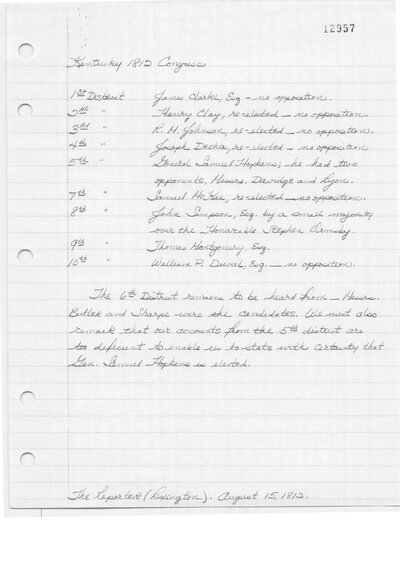 12957
Kentucky 1812 Congress
1st District James Clarke, Esq - no opposition.
2nd " Henry Clay, re-elected - no opposition.
3rd " R. H. Johnson, re-elected - no opposition.
4th " Joseph Desha, re-elected - no opposition.
5th " General Samuel Hopkins, he had two
opponents, Messrs. Davidge and Lyon.
7th " Samuel McKee, re-elected - no opposition.
8th " John Simpson, Esq. by a small majority
over the Honorable Stephen Ormsby.
9th " Thomas Montgomery, Esq.
10th " William P. Duval, Esq. - no opposition.
The 6th District remains to be heard from - Messrs.
Butler and Sharpe were the candidates. We must also
remark that our accounts from the 5th district are
too deficient to enable us to state with certainty that
Gen. Samuel Hopkins is elected.
The Reporter (Lexington). August 15, 1812.